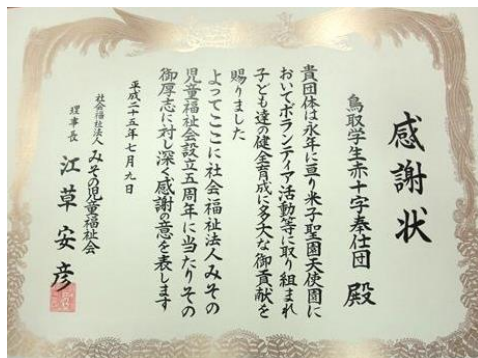 感謝状
鳥取学生赤十字奉仕団 殿
貴団体は永年に亘り米子聖園天使園に
おいてボランティア活動等に取り組まれ
子ども達の健全育成に多大な御貢献を
賜りました
よってここに社会福祉法人みその
児童福祉会設立五周年に当たりその
御厚志に対し深く感謝の意を表します
平成二十五年七月九日
社会福祉法人 みその児童福祉会
理事長 江草安彦